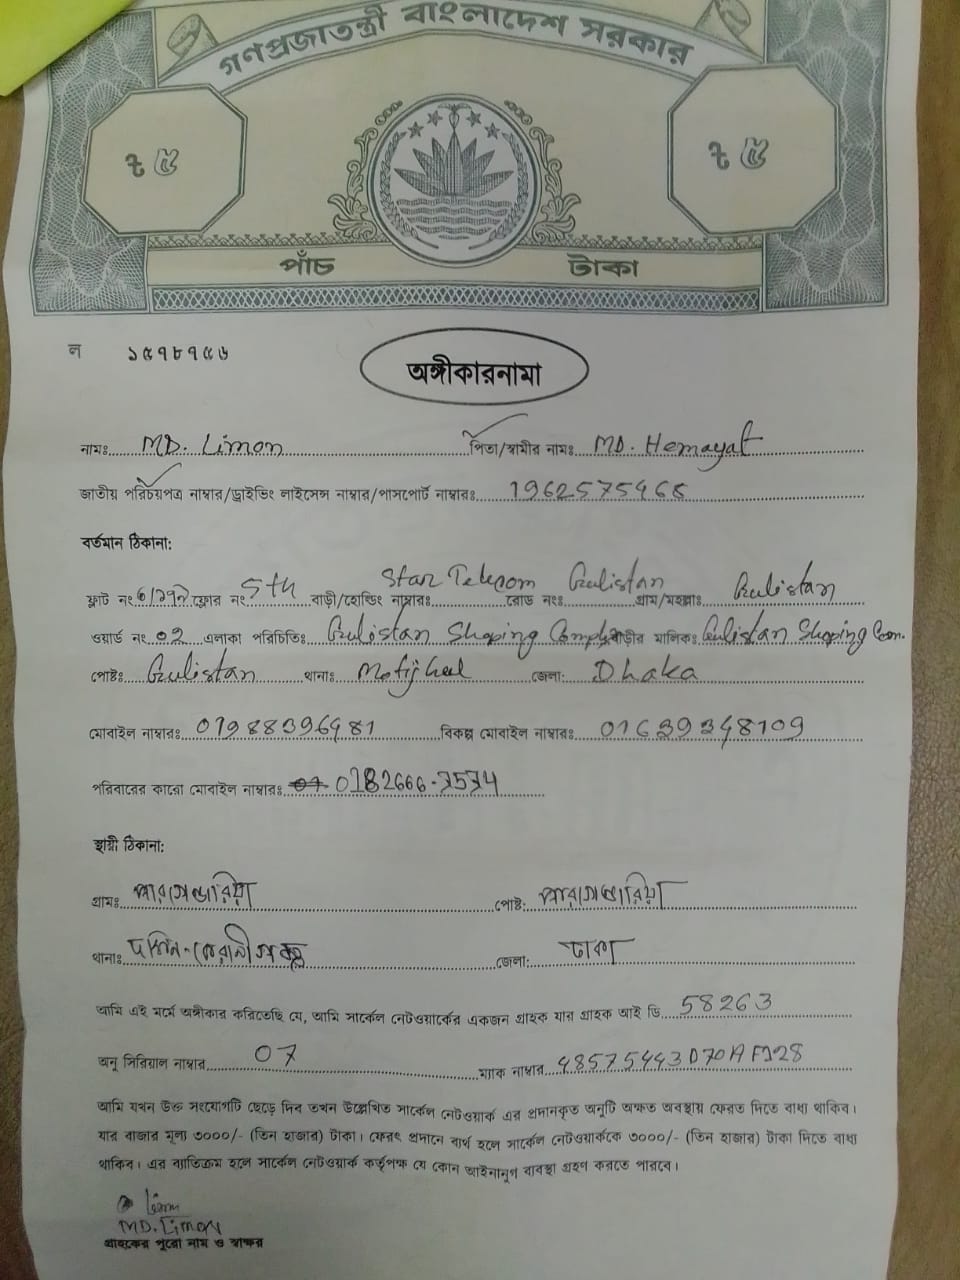 গণপ্রজাতন্ত্রী বাংলাদেশ সরকার
৳ ৫ ৳ ৫
পাঁচ টাকা
ল ১৫৭৮৭৫৬
অঙ্গীকারনামা
নামঃ MD. Limon পিতা/স্বামীর নামঃ MD. Hemayat
জাতীয় পরিচয়পত্র নাম্বার/ড্রাইভিং লাইসেন্স নাম্বার/পাসপোর্ট নাম্বারঃ
বর্তমান ঠিকানা:
ফ্লাট নং ফ্লোর নং 5th বাড়ী/হোল্ডিং নাম্বারঃ Star Telecom রোড নংঃ Gulistan গ্রাম/মহল্লাঃ Gulistan
ওয়ার্ড নং 02 এলাকা পরিচিতিঃ Gulistan Shoping বাড়ীর মালিকঃ Gulistan Shoping Com.
পোষ্টঃ Gulistan থানাঃ Motijheel জেলা: Dhaka
মোবাইল নাম্বারঃ বিকল্প মোবাইল নাম্বারঃ
পরিবারের কারো মোবাইল নাম্বারঃ
স্থায়ী ঠিকানা:
গ্রামঃ পারগেন্ডারিয়া পোষ্ট: পারগেন্ডারিয়া
থানাঃ জেলা: ঢাকা
আমি এই মর্মে অঙ্গীকার করিতেছি যে, আমি সার্কেল নেটওয়ার্কের একজন গ্রাহক যার গ্রাহক আই ডি 58263
অনু সিরিয়াল নাম্বার 07 ম্যাক নাম্বার
আমি যখন উক্ত সংযোগটি ছেড়ে দিব তখন উল্লেখিত সার্কেল নেটওয়ার্ক এর প্রদানকৃত অনুটি অক্ষত অবস্থায় ফেরত দিতে বাধ্য থাকিব।
যার বাজার মূল্য ৩০০০/- (তিন হাজার) টাকা। ফেরৎ প্রদানে ব্যর্থ হলে সার্কেল নেটওয়ার্ককে ৩০০০/- (তিন হাজার) টাকা দিতে বাধ্য
থাকিব। এর ব্যতিক্রম হলে সার্কেল নেটওয়ার্ক কর্তৃপক্ষ যে কোন আইনানুগ ব্যবস্থা গ্রহণ করতে পারবে।
Limon
MD. Limon
গ্রাহকের পুরো নাম ও স্বাক্ষর